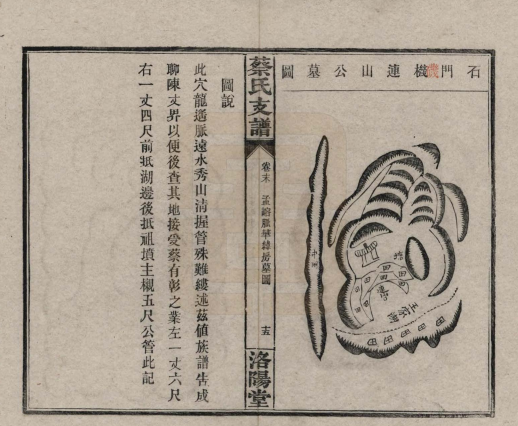 石門機連山公墓圖
磯
蔡氏支譜
卷末
墓圖
十五
洛陽堂
圖說
此穴龍遥脈遠水秀山清握管殊難縷述茲值族譜告成
聊陳丈界以便後查其地接受蔡有彰之業左一丈六尺
右一丈四尺前抵湖邊後抵祖墳主櫬五尺公管此記